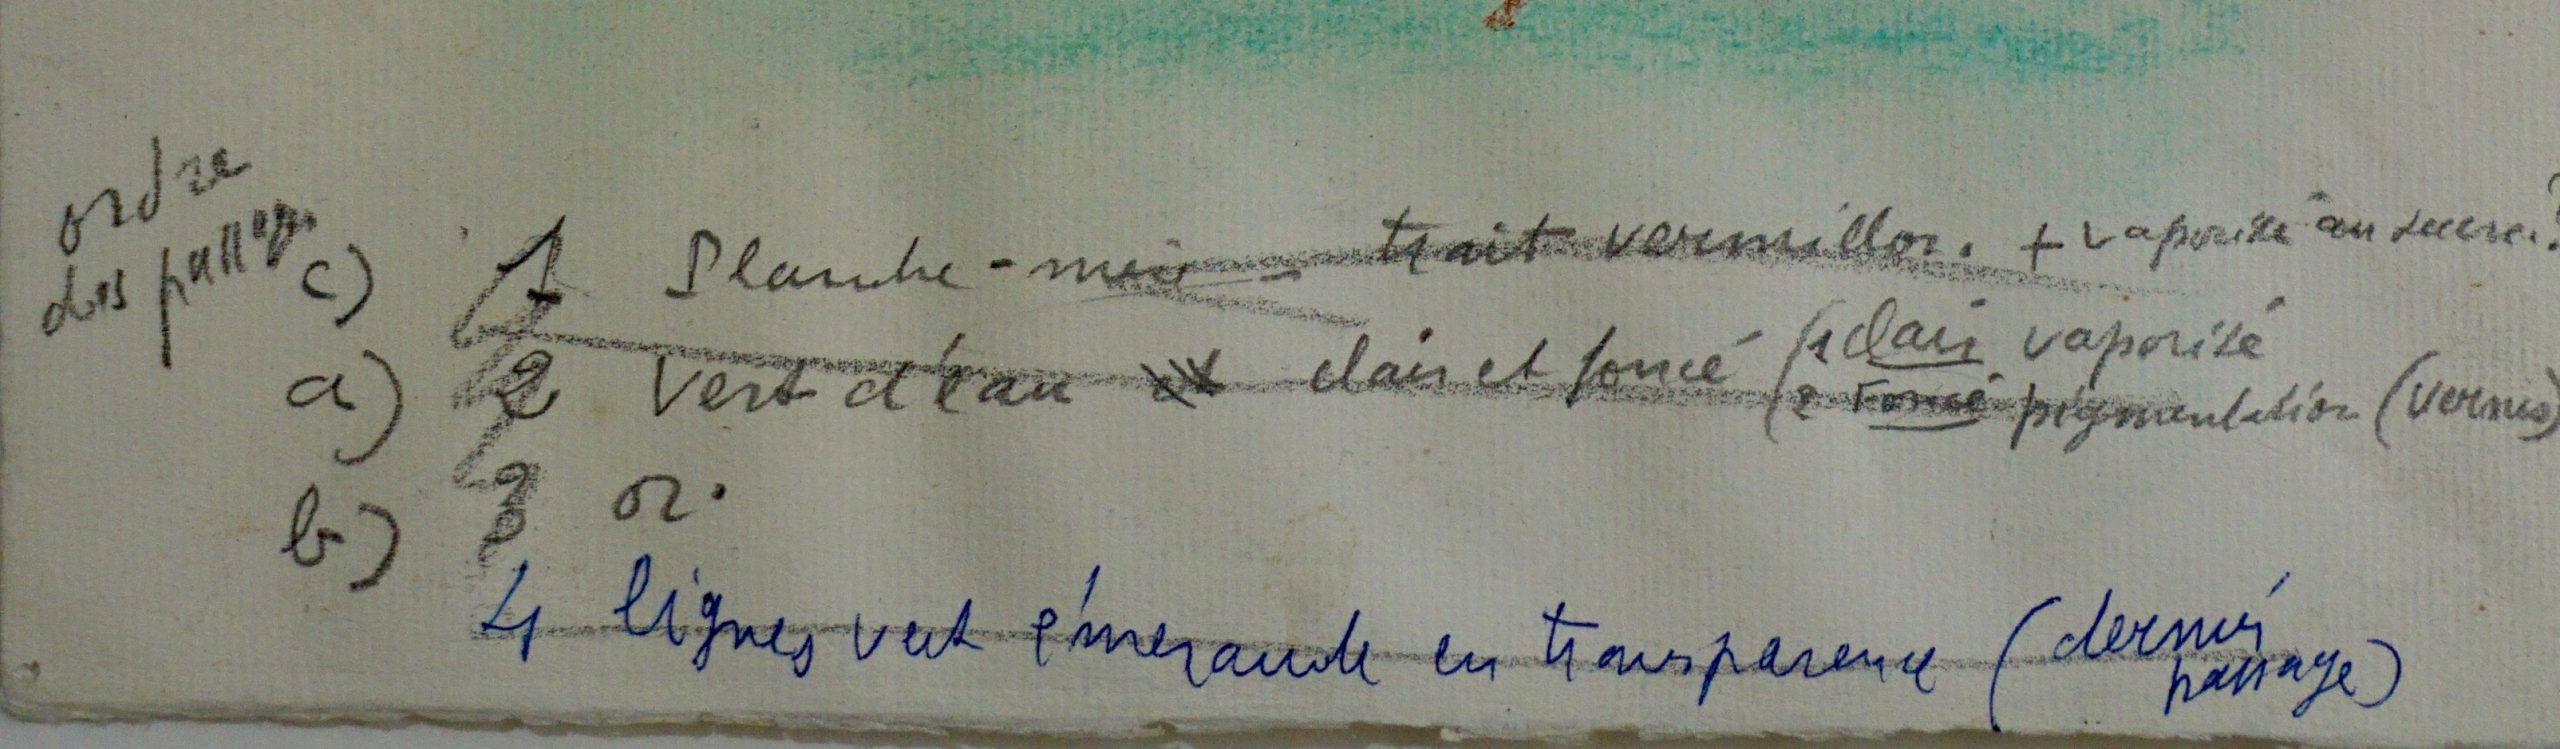 ordre
des passages
c) 1 Planche-mère - trait vermillon. + vaporisé au sucre.?
a) 2 Vert d'eau et clair et foncé (1 clair vaporisé
(2 Foncé pigmentation (vernis)
b) 3 or.
4 lignes vert émeraude en transparence (dernier
passage)